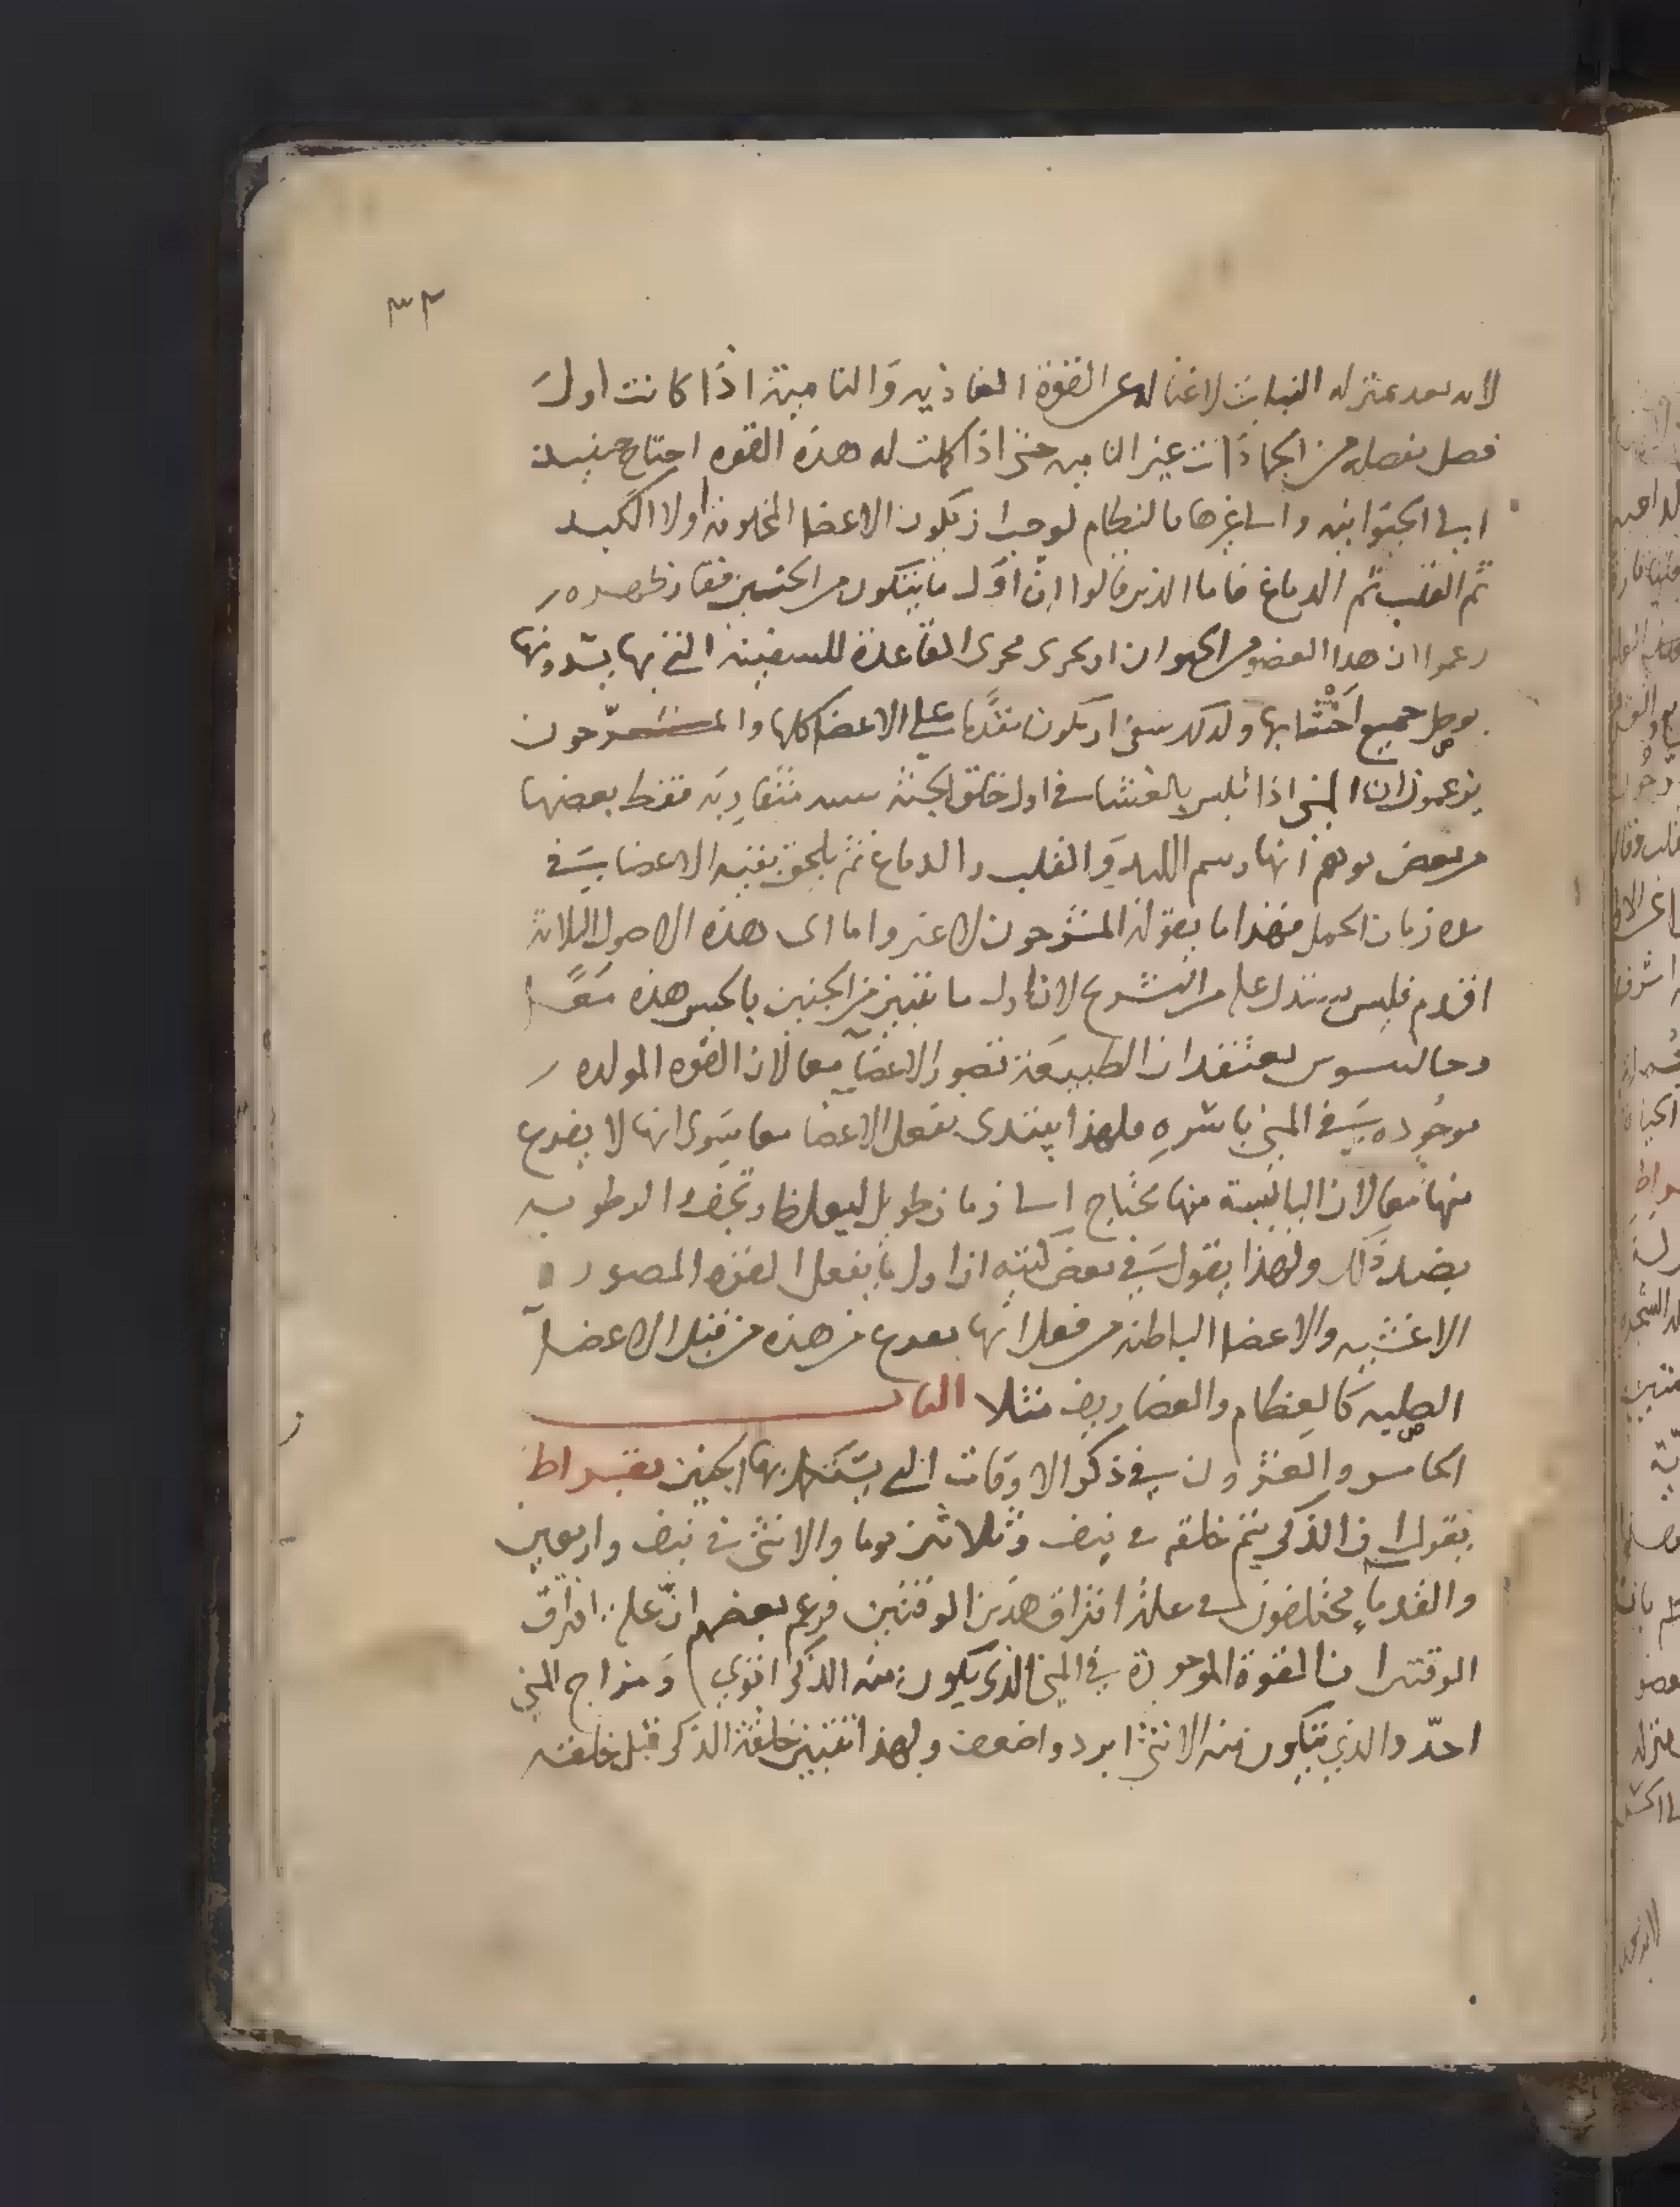 ٣٢
لانه بعد بمنزله النبات لا غنا له عن القوة الغاذيه وَالناميتة اذا كانت اول
فصل نفصله من الجماذات غير الناميه حتى اذا كملت له هذه القوه احتاج حينيذ
الى الحيوانيه والى غيرها فالنظام يوجب ان يكون الاعضا المخلوقه اولا الكبد
ثم القلب ثم الدماغ فاما الذين قالوا ان اوّل ما يتكون من الجنين فقار ظهره
زعموا ان هدا العضو من الحيوان اذ يجرى مجرى القاعدة للسفينه التي بها يشدونها
يوصل جميع اخشابها ولدلك ينبغى ان يكون متقدّما على الاعضا كلها والمشرّحون
يزعمون ان المنى اذا تلبس بالغشا فى اول خلق الجنه متقاربَه فقط بعضها
من بعض يوهم انها رسم الكبد وَالقلب والدماغ ثم يلحق بقيه الاعضا فى
مده زمان الحمل فهذا ما يقوله المشرّحون لا غير واما اى هذه الاصول الثلاثة
اقدم فليس يستدل عليه من التشريح لان اول ما يتبين من الجنين بالحس هذه مَعًا
وجالينوس يعتقد ان الطبيعَة تصور الاعضآ معا لان القوه المولده
موجُوده فى المنى باسرهِ فلهذا يبتدى بفعل الاعضا معا سَوى انها لا يفرع
منها معا لان اليابسة منها تحتاج الى زمان طويل ليغلظ وتجف والرطوبه
بضد ذلك ولهذا يقول فى بعض كتبه ان اول ما يفعل القوه المصوره
الاغشيه والاعضا الباطنه من فعل انها يفرع من هذه من قبل الاعضآ
الصلبه كالعظام والغضاريف مثلا الباب
الخامس والعشرون في ذكر الاوقات التي يستكمل بها الجنين بقراط
يقول ان الذكر يتم خلقه فى نيف وثلاثين يوما والانثى فى نيف واربعين
والقدمآ يختلفون فى علة افتراق هذين الوقتين فزعم بعضهم انّ علة افتراق
الوقتين ان القوة الموجودة في المنى الذى يكون منه الذكر اقوي وَمزاج المني
احدّ والذي يتكون منه الانثى ابرد واضعف ولهذا تتبين خلقة الذكر قبل خلقته